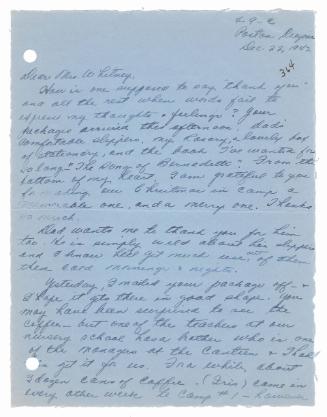 2-9-C
Poston, Arizona
Dec. 22, 1942
364
Dear Mrs. Whitney:
How is one supposed to say "thank you"
and all the rest when words fail to
express my thoughts & feelings? Your
package arrived this afternoon - dad's
comfortable slippers, my lovely box
of stationery, and the book I've wanted for
so long - The Song of Bernadette! From the
bottom of my heart, I am grateful to you
for making our Christmas in camp a
memorable one, and a merry one. Thanks
so much.
Dad wants me to thank you for him
too. He is simply wild about his slippers
and I know he'll get much use out of them
these cold mornings & nights.
Yesterday, I mailed your package off - &
I hope it gets there in good shape. You
may have been surprised to see the
coffee - but one of the teachers at our
nursery school has a brother who is one
of the managers at the Canteen & That's
get it for us. Once in a while, about
3 dozen cans of coffee (Iris) came in
every other week to Camp #1 - However